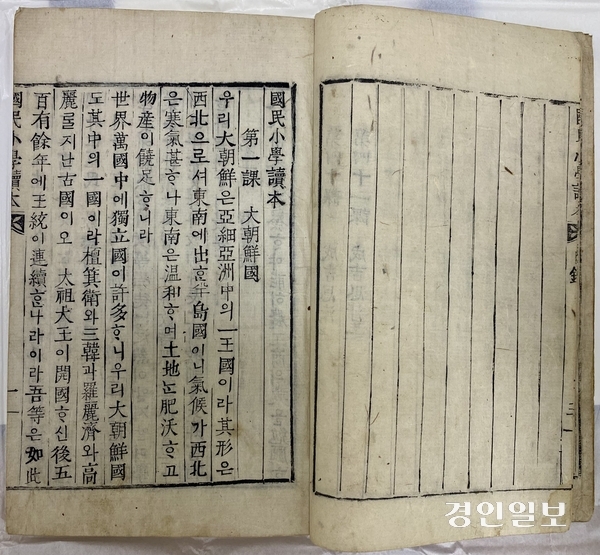 國民小學讀本
第一課 大朝鮮國
우리大朝鮮은亞細亞洲中의一王國이라其形은
西北으로셔東南에出ᄒᆞᆫ半島國이니氣候가西北
은寒氣甚ᄒᆞ나東南은溫和ᄒᆞ며土地ᄂᆞᆫ肥沃ᄒᆞ고
物産이饒足ᄒᆞ니라
世界萬國中에獨立國이許多ᄒᆞ니우리大朝鮮國
도其中의一國이라檀箕衛와三韓과羅麗濟와高
麗ᄅᆞᆯ지난古國이오 太祖大王이開國ᄒᆞ신後五
百有餘年에王統이連續ᄒᆞᆫ나라이라吾等은如此
國民小學讀本 一
경인일보